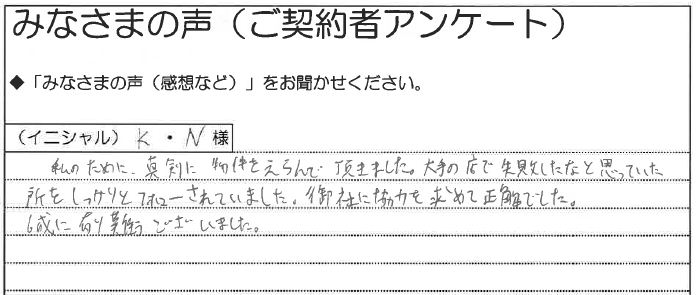 みなさまの声（ご契約者アンケート）
◆「みなさまの声（感想など）」をお聞かせください。
（イニシャル）K・N様
私のために、真剣に物件をえらんで頂きました。大手の店で失敗したなと思っていた
所をしっかりとフォローされていました。御社に協力を求めて正解でした。
誠に有り難うございました。